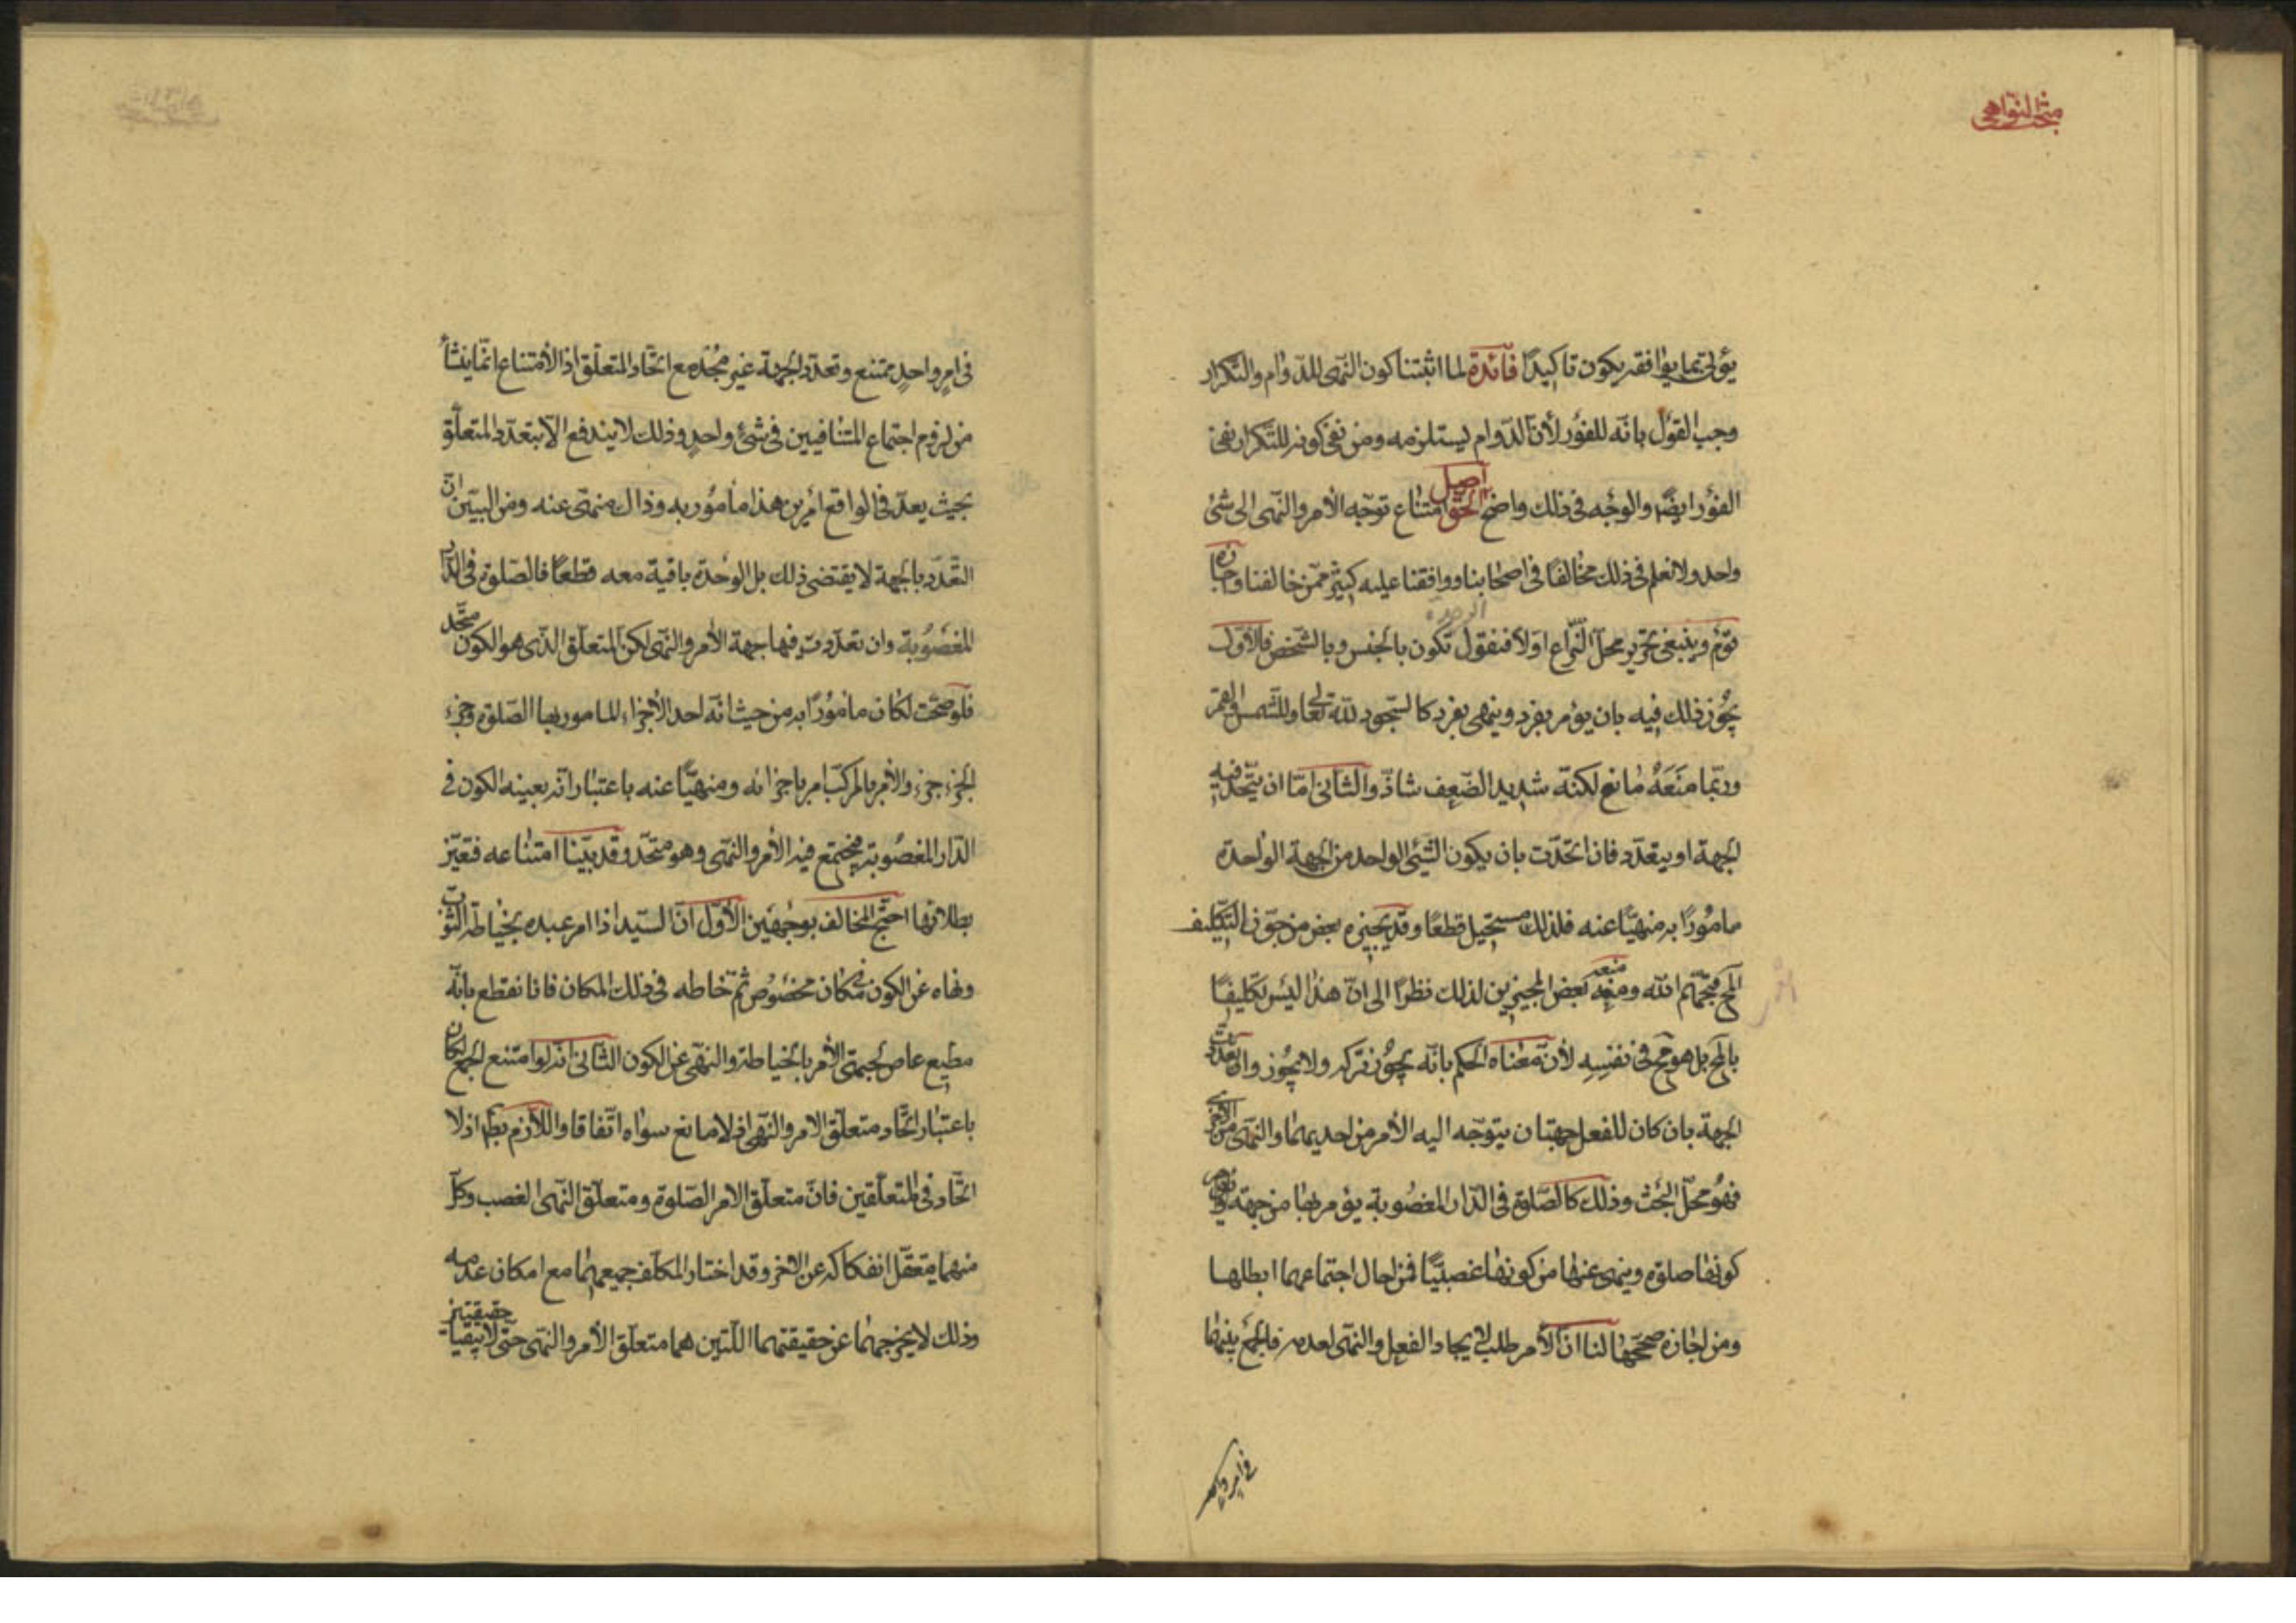 مبحث النواهی
یؤتی بما یوافقه یکون تاکیدًا فائدة لما اثبتنا کون النهی للدوام والتکرار
وجب القول بانّه للفور لأنّ الدّوام یستلزمه ومن نفی کونه للتکرار نفی
الفور ایضًا والوجه فی ذلک واضح اصل الحق امتناع توجّه الأمر والنهی الی شئ
واحد ولا نعلم فی ذلک مخالفًا فی اصحابنا ووافقنا علیه کثیر ممّن خالفنا واجازه
قوم وینبغی تحریر محلّ النّزاع اولًا فنقول الوحدة تکون بالجنس وبالشخص فالأوّل
یجوز ذلک فیه بان یؤمر بفرد وینهی بفرد کالسّجود للّه تعالی وللشمس والقمر
وربّما منعه مانع لکنّه شدید الضّعف شاذّ والثانی امّا ان یتّحد فیه
الجهة او یتعدّد فان اتّحدت بان یکون الشّیئ الواحد من الجهة الواحدة
مامورًا به منهیًّا عنه فلذلک مستحیل قطعًا وقد یجیزه بعض من جوّز التّکلیف
المح قبّحهم اللّه ومنعه بعض المجیزین لذلک نظرًا الی انّ هذا لیس تکلیفًا
بالمح بل هو مح فی نفسه لأنّ معناه الحکم بانّه یجوز ترکه ولا یجوز وان تعدّدت
الجهة بان کان للفعل جهتان یتوجّه الیه الأمر من احدیهما والنّهی من الأخری
فهو محلّ البحث وذلک کالصّلوة فی الدّار المغصوبة یؤمر بها من جهة
کونها صلوة وینهی عنها من کونها غصبیًّا فمن احال اجتماعهما ابطلها
ومن اجازه صحّحها لنا انّ الأمر طلب لایجاد الفعل والنّهی لعدمه فالجمع بینهما
فی امر واحد
فی امرٍ واحدٍ ممتنع وتعدّد الجهة غیر مجدٍ مع اتّحاد المتعلّق اذ الأمتناع انّما ینشأ
من لزوم اجتماع المتنافیین فی شئ واحدٍ وذلک لا یندفع الّا بتعدّد المتعلّق
بحیث یعدّ فی الواقع امرین هذا مأمور به وذاک منهی عنه ومن البیّن انّ
التّعدّد بالجهة لا یقتضی ذلک بل الوحدة باقیة معه قطعًا فالصّلوة فی الدّار
المغصوبة وان تعدّدت فیها جهة الأمر والنّهی لکن المتعلّق الذی هو الکون متّحد
فلو صحّت لکان مامورًا به من حیث انّه احد الأجزاء للمامور بها الصّلوة وجزء
الجزء جزء والأمر بالمرکّب امر باجزائه ومنهیًّا عنه باعتبار انّه بعینه الکون فی
الدّار المغصوبة فیجتمع فیه الأمر والنّهی وهو متّحد وقد بیّنا امتناعه فتعیّن
بطلانها احتجّ المخالف بوجهین الأوّل انّ السیّد اذا امر عبده بخیاطة الثوب
ونهاه عن الکون فی مکان مخصوص ثمّ خاطه فی ذلک المکان فانا نقطع بانّه
مطیع عاص لجهتی الأمر بالخیاطة والنهی عن الکون الثانی انّه لو امتنع الجمع لکان
باعتبار اتّحاد متعلّق الامر والنّهی اذ لا مانع سواه اتّفاقا واللّازم بط اذ لا
اتّحاد فی المتعلّقین فانّ متعلّق الامر الصّلوة ومتعلّق النّهی الغصب وکلّ
منهما یتعقّل انفکاکه عن الاخر وقد اختار المکلّف جمعهما مع امکان عدمه
وذلک لا یخرجهما عن حقیقتهما اللّتین هما متعلّق الأمر والنّهی حتی لا یبقیا حقیقتین